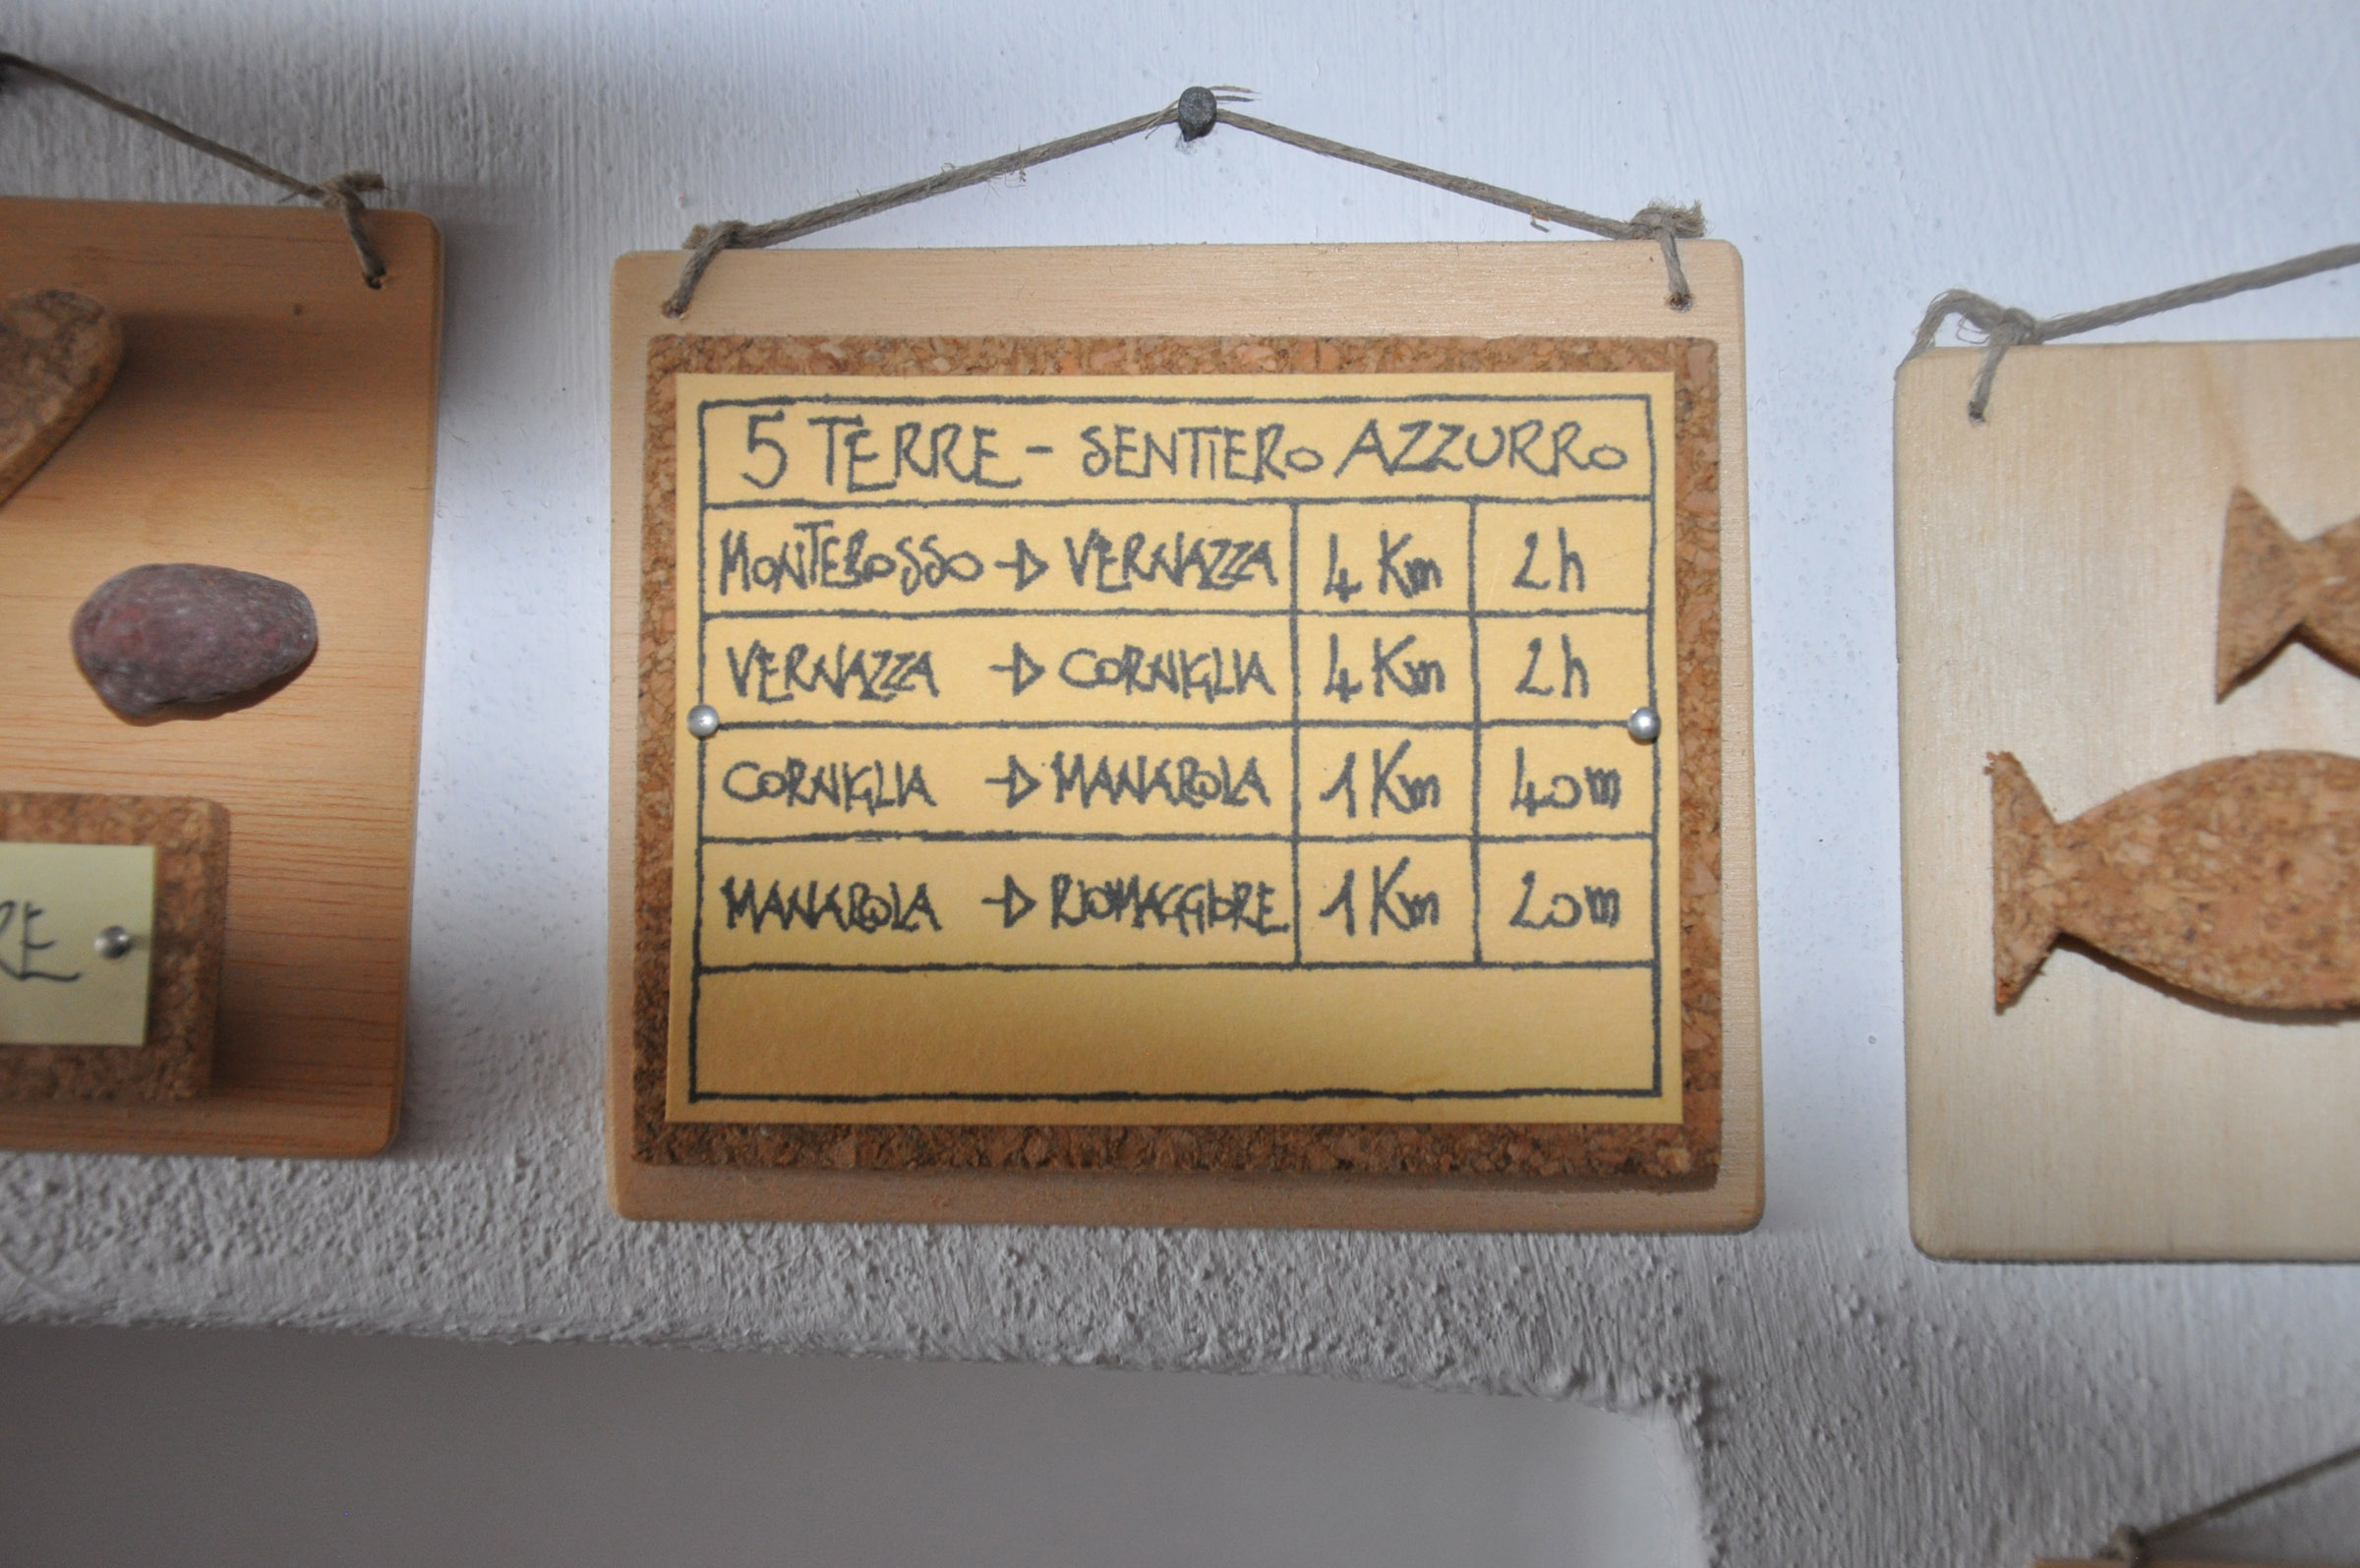 5 TERRE - SENTIERO AZZURRO
MONTEROSSO → VERNAZZA 4 Km 2h
VERNAZZA → CORNIGLIA 4 Km 2h
CORNIGLIA → MANAROLA 1 Km 40m
MANAROLA → RIOMAGGIORE 1 Km 20m
RE